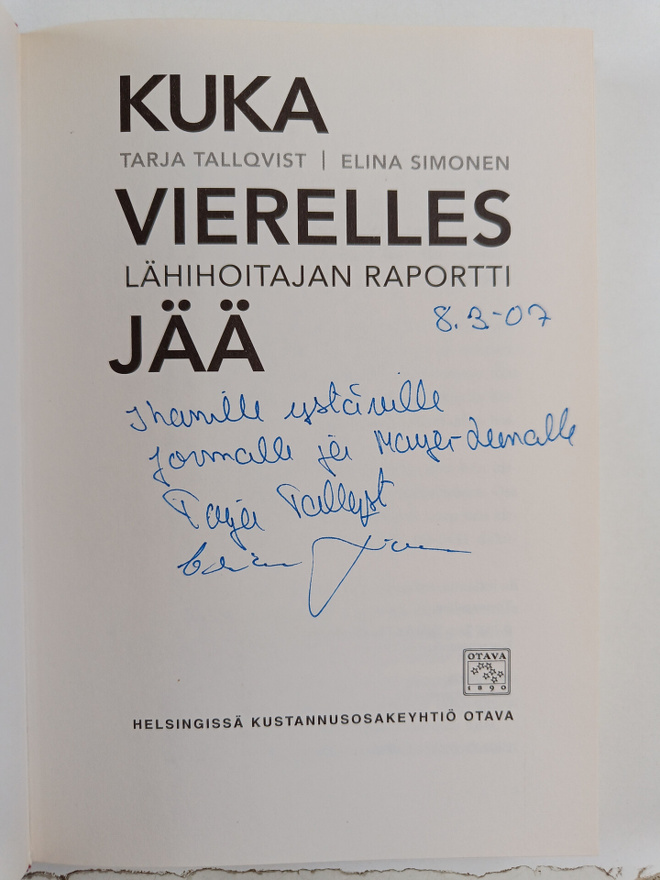 KUKA
TARJA TALLQVIST | ELINA SIMONEN
VIERELLES
LÄHIHOITAJAN RAPORTTI
JÄÄ
8.3-07
Ihanille ystäville
Jormalle ja Marja-Leenalle
Tarja Tallqvist
OTAVA
1890
HELSINGISSÄ KUSTANNUSOSAKEYHTIÖ OTAVA